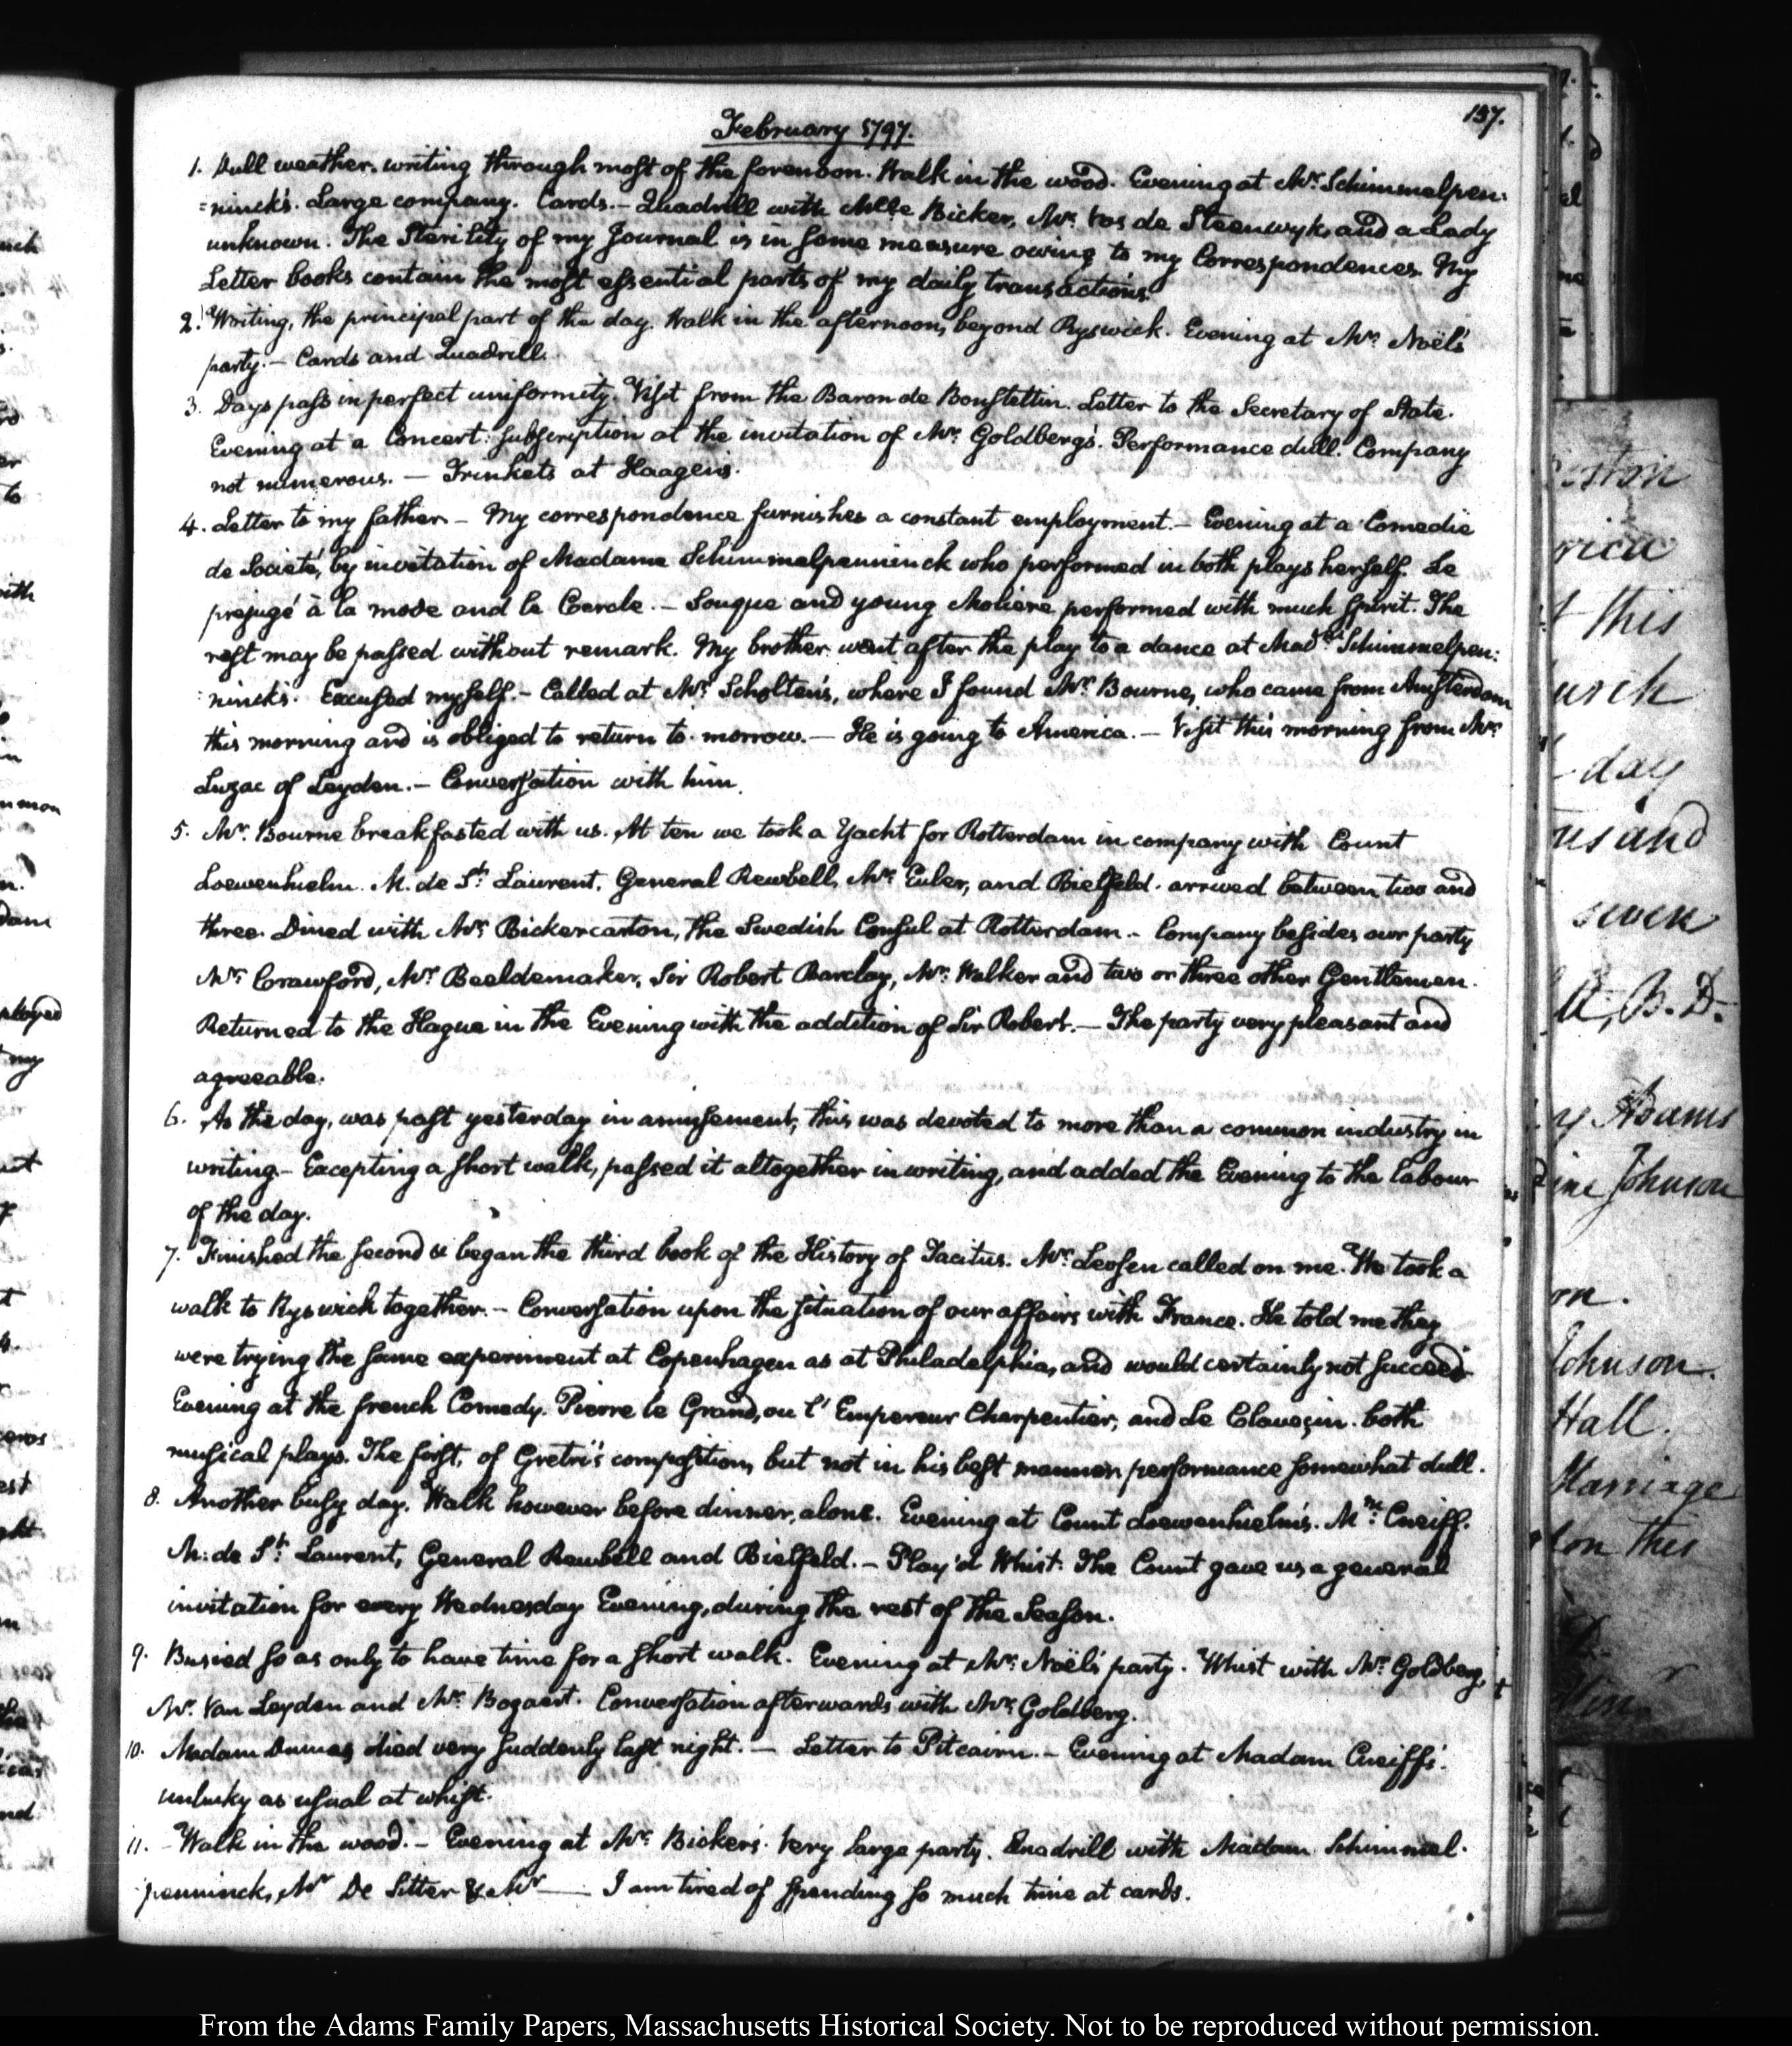 137.
February 1797.
1. Dull weather. writing through most of the forenoon. Walk in the wood. Evening at Mr. Schimmelpen:
=ninck's. Large company. Cards. — Quadrill with Mlle Bicker, Mr. Vos de Steenwyk, and a Lady
unknown. The Sterility of my Journal is in some measure owing to my Correspondences. My
Letter books contain the most essential parts of my daily transactions.
2. Writing, the principal part of the day. Walk in the afternoon, beyond Ryswick. Evening at Mr. Noël's
party. — Cards and Quadrill.
3. Days pass in perfect uniformity. Visit from the Baron de Boustettin. Letter to the Secretary of State.
Evening at a Concert: subscription at the invitation of Mr. Goldberg's. Performance dull. Company
not numerous. — Trinkets at Haagen's.
4. Letter to my father. — My correspondence furnishes a constant employment. — Evening at a Comedie
de Societé, by invitation of Madame Schimmelpenninck who performed in both plays herself. Le
prejugé à la mode and le Cercle. — Souque and young Moliere performed with much spirit. The
rest may be passed without remark. My brother went after the play to a dance at Made. Schimmelpen:
:ninck's. Excused myself. — Called at Mr. Scholten's, where I found Mr. Bourne, who came from Amsterdam
this morning and is obliged to return to-morrow. — He is going to America. — Visit this morning from Mr.
Luzac of Leyden. — Conversation with him.
5. Mr. Bourne breakfasted with us. At ten we took a Yacht for Rotterdam in company with Count
Loewenhielm. M. de St. Laurent, General Rewbell, Mr. Euler, and Bielfeld. arrived between two and
three. Dined with Mr. Bickercaston, the Swedish Consul at Rotterdam. — Company besides our party
Mr. Crawford, Mr. Beeldemaker, Sir Robert Barclay, Mr. Walker and two or three other Gentlemen.
Returned to the Hague in the Evening with the addition of Sir Robert. — The party very pleasant and
agreeable.
6. As the day, was past yesterday in amusement, this was devoted to more than a common industry in
writing — Excepting a short walk, passed it altogether in writing, and added the Evening to the labour
of the day.
7. Finished the second & began the third book of the History of Tacitus. Mr. Levsen called on me. We took a
walk to Ryswick together. — Conversation upon the situation of our affairs with France. He told me they
were trying the same experiment at Copenhagen as at Philadelphia, and would certainly not succeed.
Evening at the french Comedy. Pierre le Grand, ou l'Empereur Charpentier, and Le Clavecin. both
musical plays. The first, of Gretri's composition, but not in his best manner. performance somewhat dull.
8. Another busy day. Walk however before dinner, alone. Evening at Count Loewenhielm's. Me. Cneiff.
M: de St. Laurent, General Rewbell and Bielfeld. — Play'd Whist. The Count gave us a general
invitation for every Wednesday Evening, during the rest of the Season.
9. Busied so as only to have time for a short walk. Evening at Mr. Noël's party. Whist with Mr. Goldberg,
Mr. Van Leyden and Mr. Bogaert. Conversation afterwards with Mr. Goldberg.
10. Madam Dumas died very suddenly last night. — Letter to Pitcairn. — Evening at Madam Cneiff's.
unlucky as usual at whist.
11. — Walk in the wood. — Evening at Mr. Bicker's. Very large party. Quadrill with Madam Schimmel-
penninck, Mr De Sitter & Mr —— I am tired of spending so much time at cards.
this
day
seven
B. D.
Adams
Johnson
Johnson.
Hall.
Marriage
on this
From the Adams Family Papers, Massachusetts Historical Society. Not to be reproduced without permission.